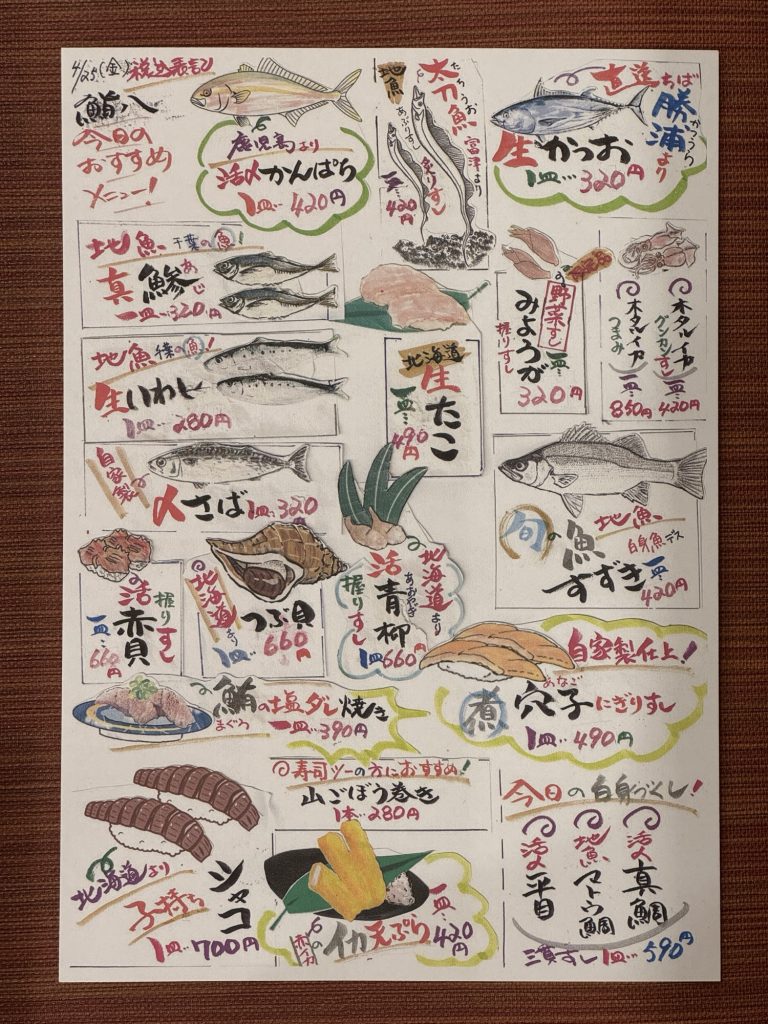 4/25(金) 税込表記
鮪八
今日の
おすすめ
メニュー!
鹿児島より
活〆かんぱち
1皿…420円
地魚
たちうお
太刀魚
富津より
あぶりすし
炙りすし
一皿…420円
直送ちば
かつうら
勝浦より
生かつお
1皿…320円
地魚 千葉の魚!
あじ
真鯵
一皿…320円
地魚 千葉の魚!
生いわし
1皿…280円
北海道
生たこ
一皿…490円
野菜すし
みょうが
握りすし
一皿
320円
ホタルイカ
グンカンすし
一皿…420円
ホタルイカ
つまみ
一皿…850円
自家製
〆さば 1皿…320
旬の魚
地魚
白身魚デス
すずき 一皿…420円
活赤貝
握りすし
一皿…660円
北海道より
つぶ貝
1皿…660円
北海道より
活青柳
あおやぎ
握りすし
1皿660円
自家製仕上!
あなご
煮穴子にぎりすし
1皿…490円
鮪の塩ダレ焼き
まぐろ
一皿…390円
◎寿司ツーの方におすすめ!
山ごぼう巻き
1本…280円
北海道より
子持ち
シャコ
1皿…700円
イカ天ぷら
一皿…420円
今日の白身づくし!
活〆真鯛
地魚マトウ鯛
活〆平目
三貫すし 1皿…590円